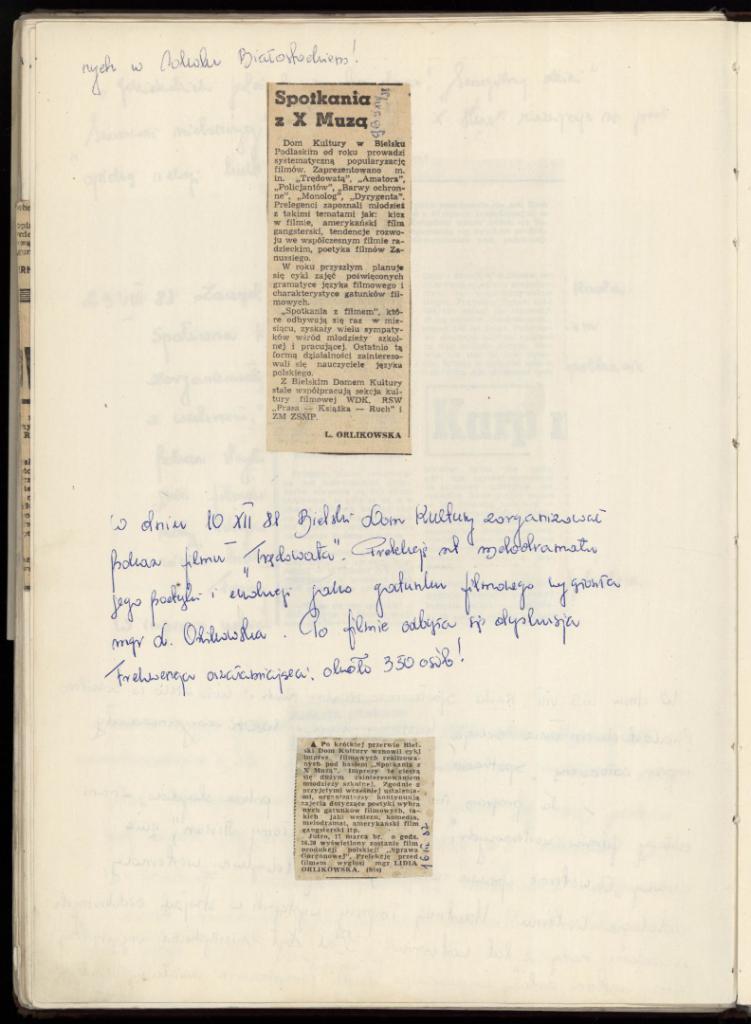 nych w Sokołu Białostockiem!
Spotkania
z X Muzą
Dom Kultury w Bielsku
Podlaskim od roku prowadzi
systematyczną popularyzację
filmów. Zaprezentowano m.
in. „Trędowatą”, „Amatora”,
„Policjantów”, „Barwy ochron-
ne”, „Monolog”, „Dyrygenta”.
Prelegenci zapoznali młodzież
z takimi tematami jak: kicz
w filmie, amerykański film
gangsterski, tendencje rozwo-
ju we współczesnym filmie ra-
dzieckim, poetyka filmów Za-
nussiego.
W roku przyszłym planuje
się cykl zajęć poświęconych
gramatyce języka filmowego i
charakterystyce gatunków fil-
mowych.
„Spotkania z filmem”, któ-
re odbywają się raz w mie-
siącu, zyskały wielu sympaty-
ków wśród młodzieży szkol-
nej i pracującej. Ostatnio tą
formą działalności zaintereso-
wali się nauczyciele języka
polskiego.
Z Bielskim Domem Kultury
stale współpracują sekcja kul-
tury filmowej WDK, RSW
„Prasa — Książka — Ruch” i
ZM ZSMP.
L. ORLIKOWSKA
W dniu 10 XII 81 Bielski Dom Kultury zorganizował
pokaz filmu „Trędowata”. Prelekcję nt melodramatu
jego poetyki i ewolucji jako gatunku filmowego wygłosiła
mgr L. Orlikowska. Po filmie odbyła się dyskusja
Frekwencja oszałamiająca: około 350 osób!
▲ Po krótkiej przerwie Biel-
ski Dom Kultury wznowił cykl
imprez filmowych realizowa-
nych pod hasłem „Spotkania z
X Muzą”. Imprezy te cieszą
się dużym zainteresowaniem
młodzieży szkolnej. Zgodnie z
przyjętymi wcześniej ustalenia-
mi, organizatorzy kontynuują
zajęcia dotyczące poetyki wybra-
nych gatunków filmowych, ta-
kich jak: western, komedia,
melodramat, amerykański film
gangsterski itp.
Jutro, 17 marca br. o godz.
16.30 wyświetlony zostanie film
produkcji polskiej „Sprawa
Gorgonowej”. Prelekcję przed
filmem wygłosi mgr LIDIA
ORLIKOWSKA.
16 III 82